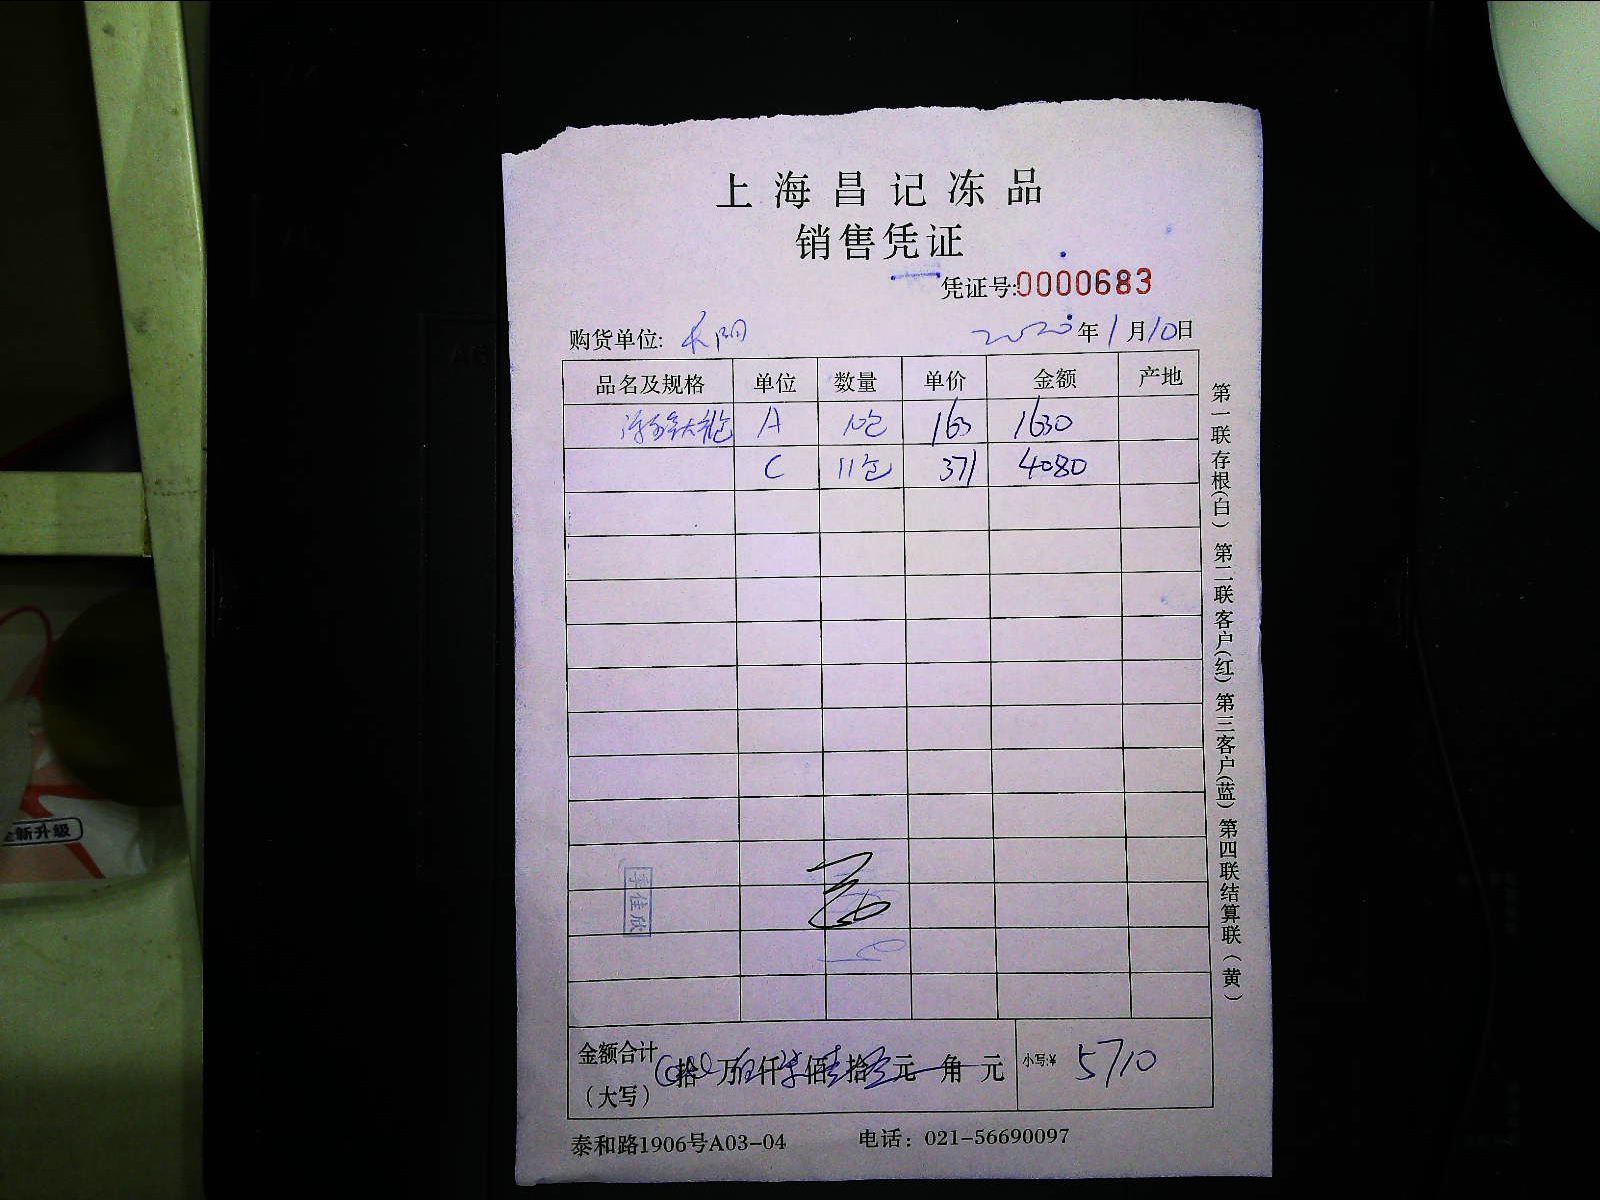 上海昌记冻品
销售凭证
凭证号:0000683
购货单位: 长阳 2020年1月10日
品名及规格 单位 数量 单价 金额 产地
A 10包 163 1630
C 11包 371 4080
李佳欣
金额合计 拾 万伍仟柒佰壹拾零元 角 元 小写:¥ 5710
(大写)
泰和路1906号A03-04 电话: 021-56690097
第一联存根(白) 第二联客户(红) 第三客户(蓝) 第四联结算联(黄)
全新升级